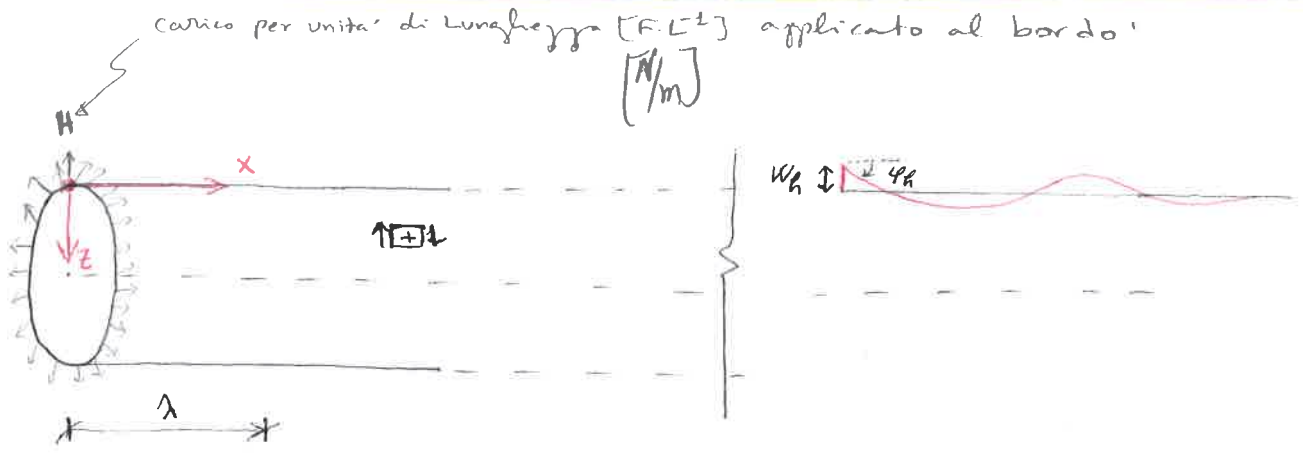 carico per unità di Lunghezza [F.L⁻¹] applicato al bordo
[N/m]
H
x
z
+
λ
Wh
φh